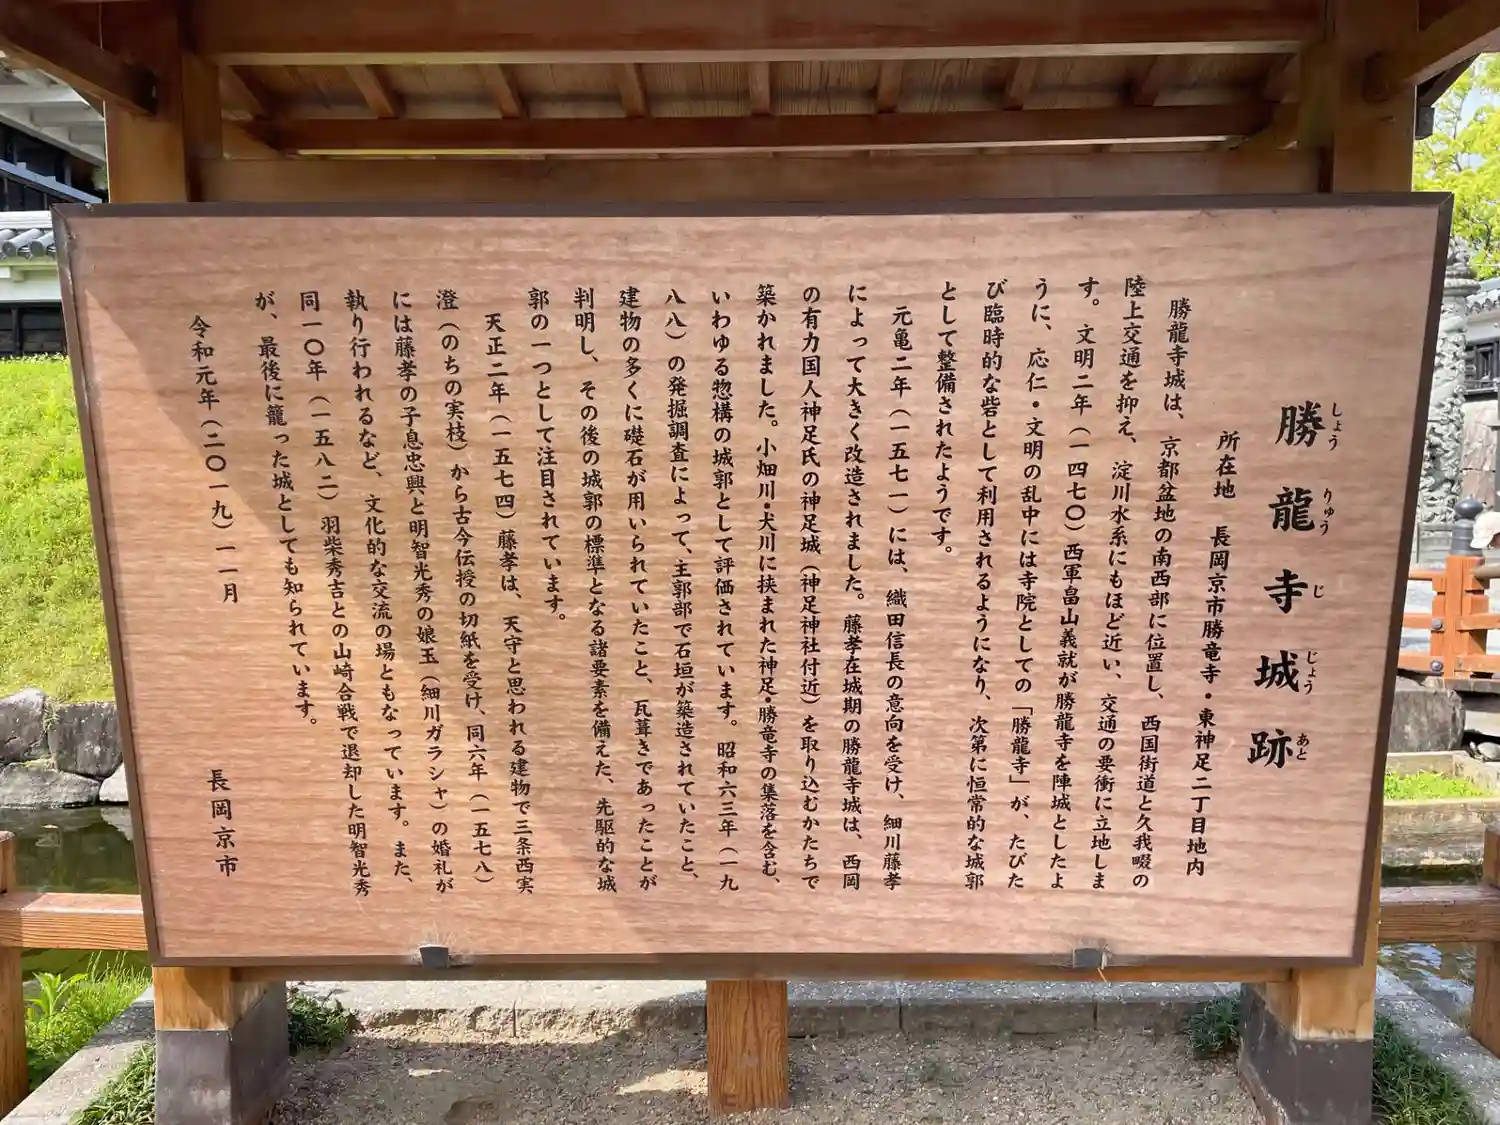 勝龍寺城跡
しょう りゅう じ じょう あと
所在地　長岡京市勝竜寺・東神足二丁目地内
勝龍寺城は、京都盆地の南西部に位置し、西国街道と久我畷の
陸上交通を抑え、淀川水系にもほど近い、交通の要衝に立地しま
す。文明二年（一四七〇）西軍畠山義就が勝龍寺を陣城としたよ
うに、応仁・文明の乱中には寺院としての「勝龍寺」が、たびた
び臨時的な砦として利用されるようになり、次第に恒常的な城郭
として整備されたようです。
元亀二年（一五七一）には、織田信長の意向を受け、細川藤孝
によって大きく改造されました。藤孝在城期の勝龍寺城は、西岡
の有力国人神足氏の神足城（神足神社付近）を取り込むかたちで
築かれました。小畑川・犬川に挟まれた神足・勝竜寺の集落を含む、
いわゆる惣構の城郭として評価されています。昭和六三年（一九
八八）の発掘調査によって、主郭部で石垣が築造されていたこと、
建物の多くに礎石が用いられていたこと、瓦葺きであったことが
判明し、その後の城郭の標準となる諸要素を備えた、先駆的な城
郭の一つとして注目されています。
天正二年（一五七四）藤孝は、天守と思われる建物で三条西実
澄（のちの実枝）から古今伝授の切紙を受け、同六年（一五七八）
には藤孝の子息忠興と明智光秀の娘玉（細川ガラシャ）の婚礼が
執り行われるなど、文化的な交流の場ともなっています。また、
同一〇年（一五八二）羽柴秀吉との山崎合戦で退却した明智光秀
が、最後に籠った城としても知られています。
令和元年（二〇一九）一一月
長岡京市